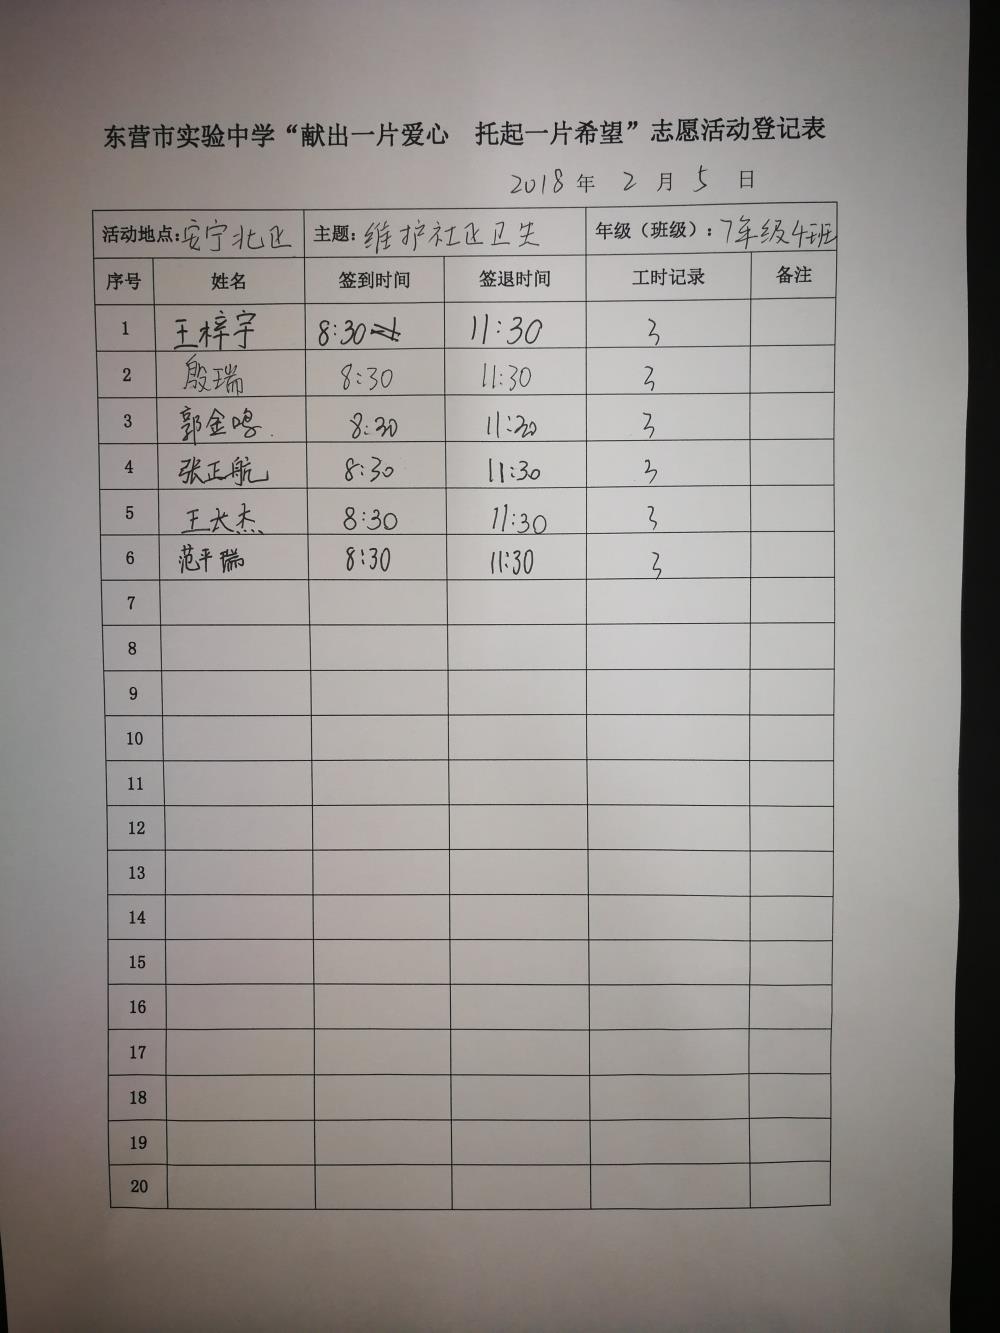 东营市实验中学“献出一片爱心 托起一片希望”志愿活动登记表
2018 年 2 月 5 日
活动地点:安宁北区 主题:维护社区卫生 年级（班级）:7年级4班
序号 姓名 签到时间 签退时间 工时记录 备注
1 王梓宇 8:30 11:30 3
2 殷瑞 8:30 11:30 3
3 郭金鸣 8:30 11:30 3
4 张正航 8:30 11:30 3
5 王长杰 8:30 11:30 3
6 范平瑞 8:30 11:30 3
7
8
9
10
11
12
13
14
15
16
17
18
19
20